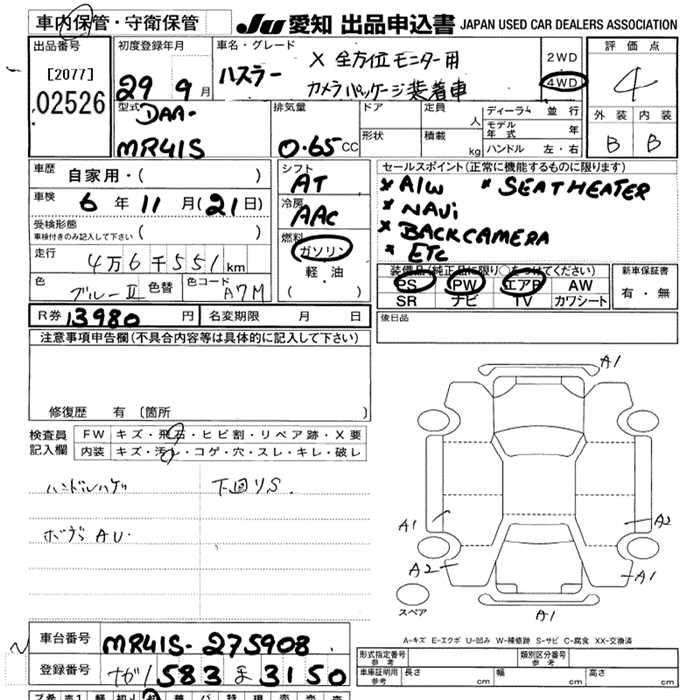 車内保管・守衛保管
JU 愛知 出品申込書 JAPAN USED CAR DEALERS ASSOCIATION
出品番号 初度登録年月 車名・グレード 評価点
[2077] 02526
29 9月
ハスラー X 全方位モニター用
カメラパッケージ装着車
2WD
4WD
4
型式 DAA-
MR41S
排気量 0.65 CC
ドア 定員 人
形状 積載 kg
ディーラー 並行
モデル年式 年
ハンドル 左・右
外装 内装
B B
車歴 自家用・( )
車検 6年11月(21日)
受検形態
車検付きのみ記入して下さい ( )
走行 4万6千551km
色 ブルーⅡ 色替 色コード A7M
シフト AT
冷房 AAC
燃料 ガソリン
軽・油
( )
セールスポイント(正常に機能するものに限ります)
* A/W * SEATHEATER
* NAVi
* BACKCAMERA
* ETC
装備品(純正品に限り○をつけてください)
PS PW エアB AW
SR ナビ TV カワシート
新車保証書
有・無
R券 13980円 名変期限 月 日
後日品
注意事項申告欄(不具合内容等は具体的に記入して下さい)
修復歴 有 〔箇所
検査員記入欄
FW キズ・飛石・ヒビ割・リペア跡・X要
内装 キズ・汚レ・コゲ・穴・スレ・キレ・破レ
ハンドルハゲ 下回りS.
ボデ AU.
A1
A1
A2
A2
A1
A1
スペア
A-キズ E-エクボ U-凹み W-補修跡 S-サビ C-腐食 XX-交換済
車台番号 MR41S-275908
登録番号 583 ま 3150
形式指定番号 参考
類別区分番号 参考
車庫証明用 参考 長さ cm 幅 cm 高さ cm